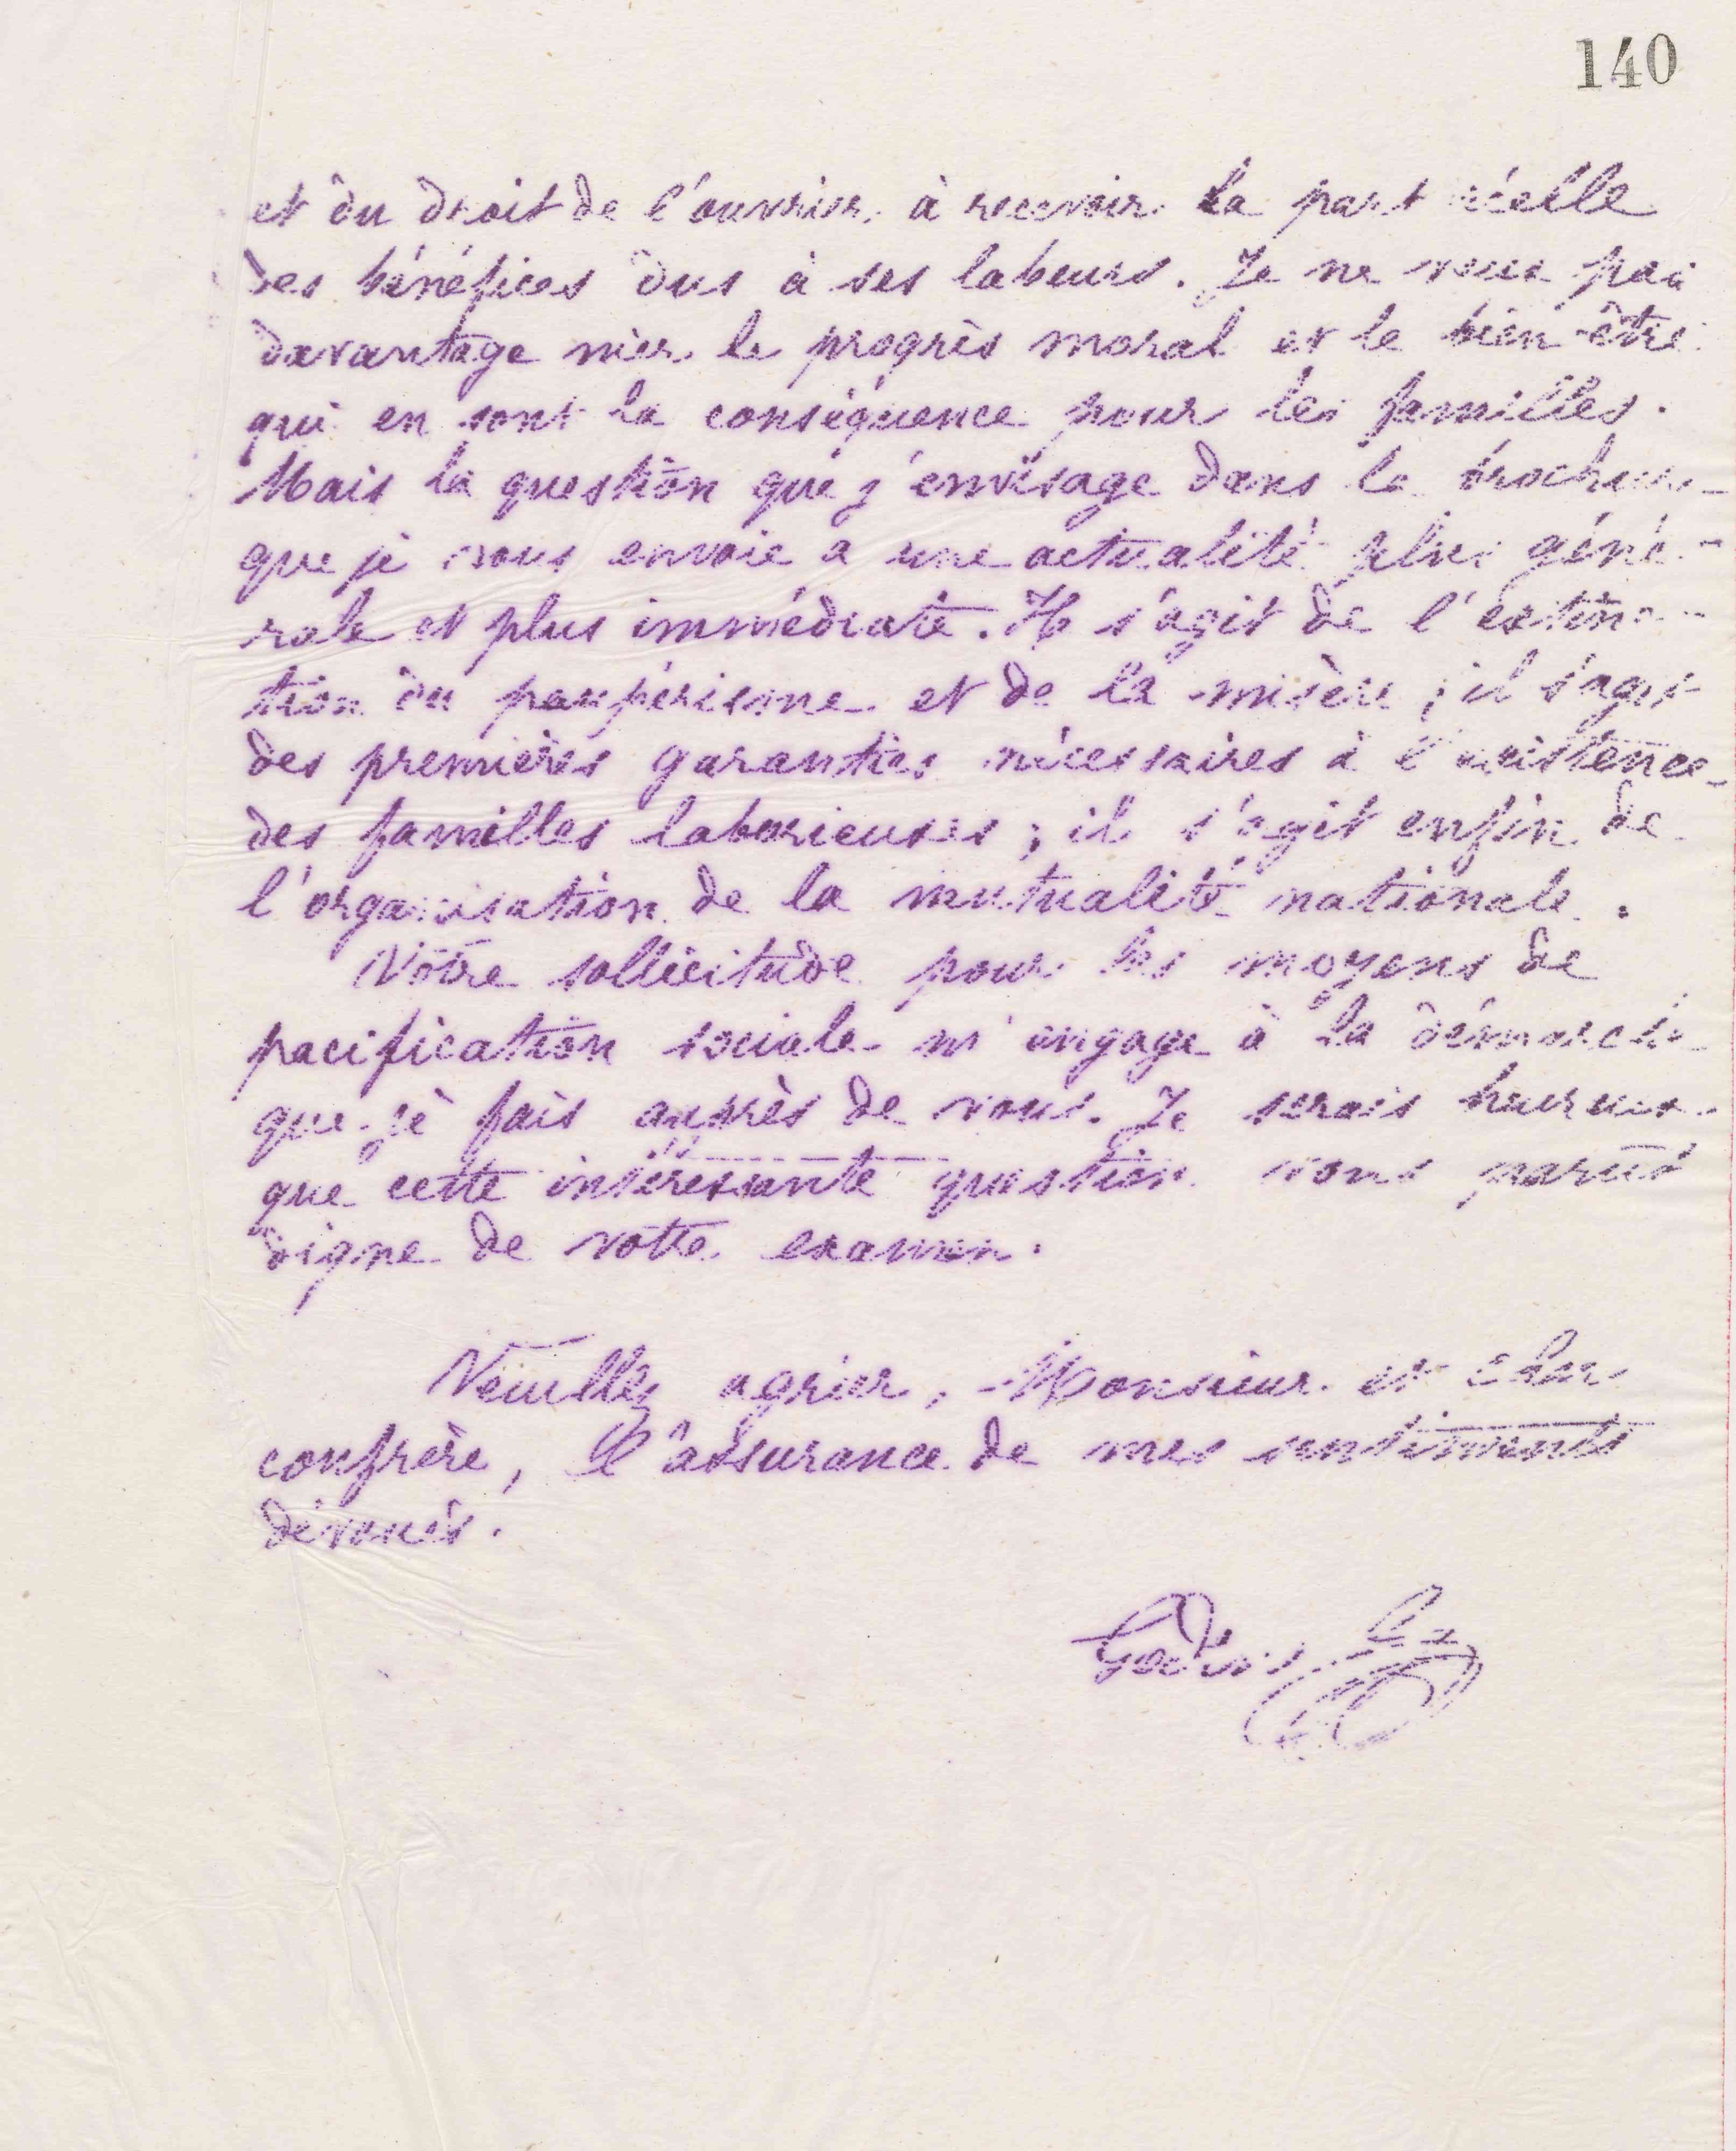 140
et du droit de l'ouvrier à recevoir la part réelle
des bénéfices dus à ses labeurs. Je ne veux pas
davantage nier le progrès moral et le bien-être
qui en sont la conséquence pour les familles.
Mais la question que j'envisage dans la brochure
que je vous envoie a une actualité plus géné-
rale et plus immédiate. Il s'agit de l'extinc-
tion du paupérisme et de la misère ; il s'agit
des premières garanties nécessaires à l'existence
des familles laborieuses ; il s'agit enfin de
l'organisation de la mutualité nationale.
Votre sollicitude pour les moyens de
pacification sociale m'engage à la démarche
que je fais auprès de vous. Je serais heureux
que cette intéressante question vous parût
digne de votre examen.
Veuillez agréer, Monsieur et cher
confrère, l'assurance de mes sentiments
dévoués.
Godin